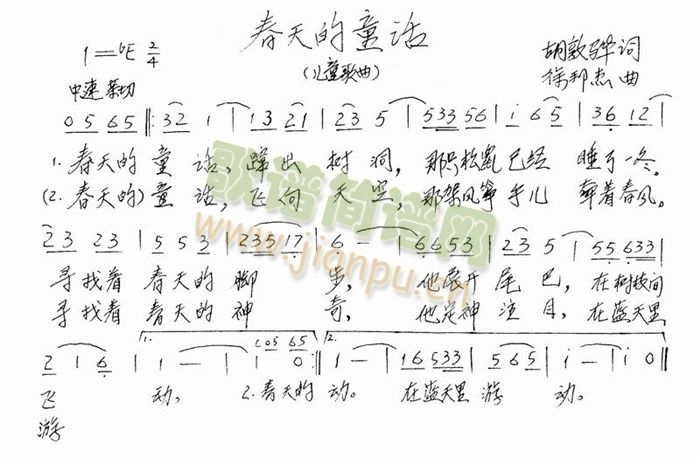 春天的童话
(儿童歌曲)
1=bE 2/4
胡敦骅 词
徐邦杰 曲
中速 亲切
0 5 6 5 |: 3 2 1 | 1 3 2 1 | 2 3 5 | 5 3 3 5 6 | i 6 5 | 3 6 1 2 |
1. 春天的 童 话, 蹿出 树 洞, 那只松鼠已经 睡了一冬。
(2. 春天的) 童 话, 飞向 天 空, 那架风筝手儿 牵着春风。
2 3 2 3 | 5 5 3 | 2 3 5 1 7 | 6 - | 6 6 5 3 | 2 3 5 | 5 5 6 3 3 |
寻找着 春天的 脚 步, 他展开 尾 巴, 在树枝间
寻找着 春天的 神 奇, 他定神 注 目, 在蓝天里
2 1 6 | 1. 1 - | 1 0 :| 2. 1 - | 1 6 5 3 3 | 5 6 5 | i - | i 0 ‖
(0 5 6 5
飞 动, 2. 春天的 动。 在蓝天里 游 动。
游
歌谱简谱网
www.jianpu.cn